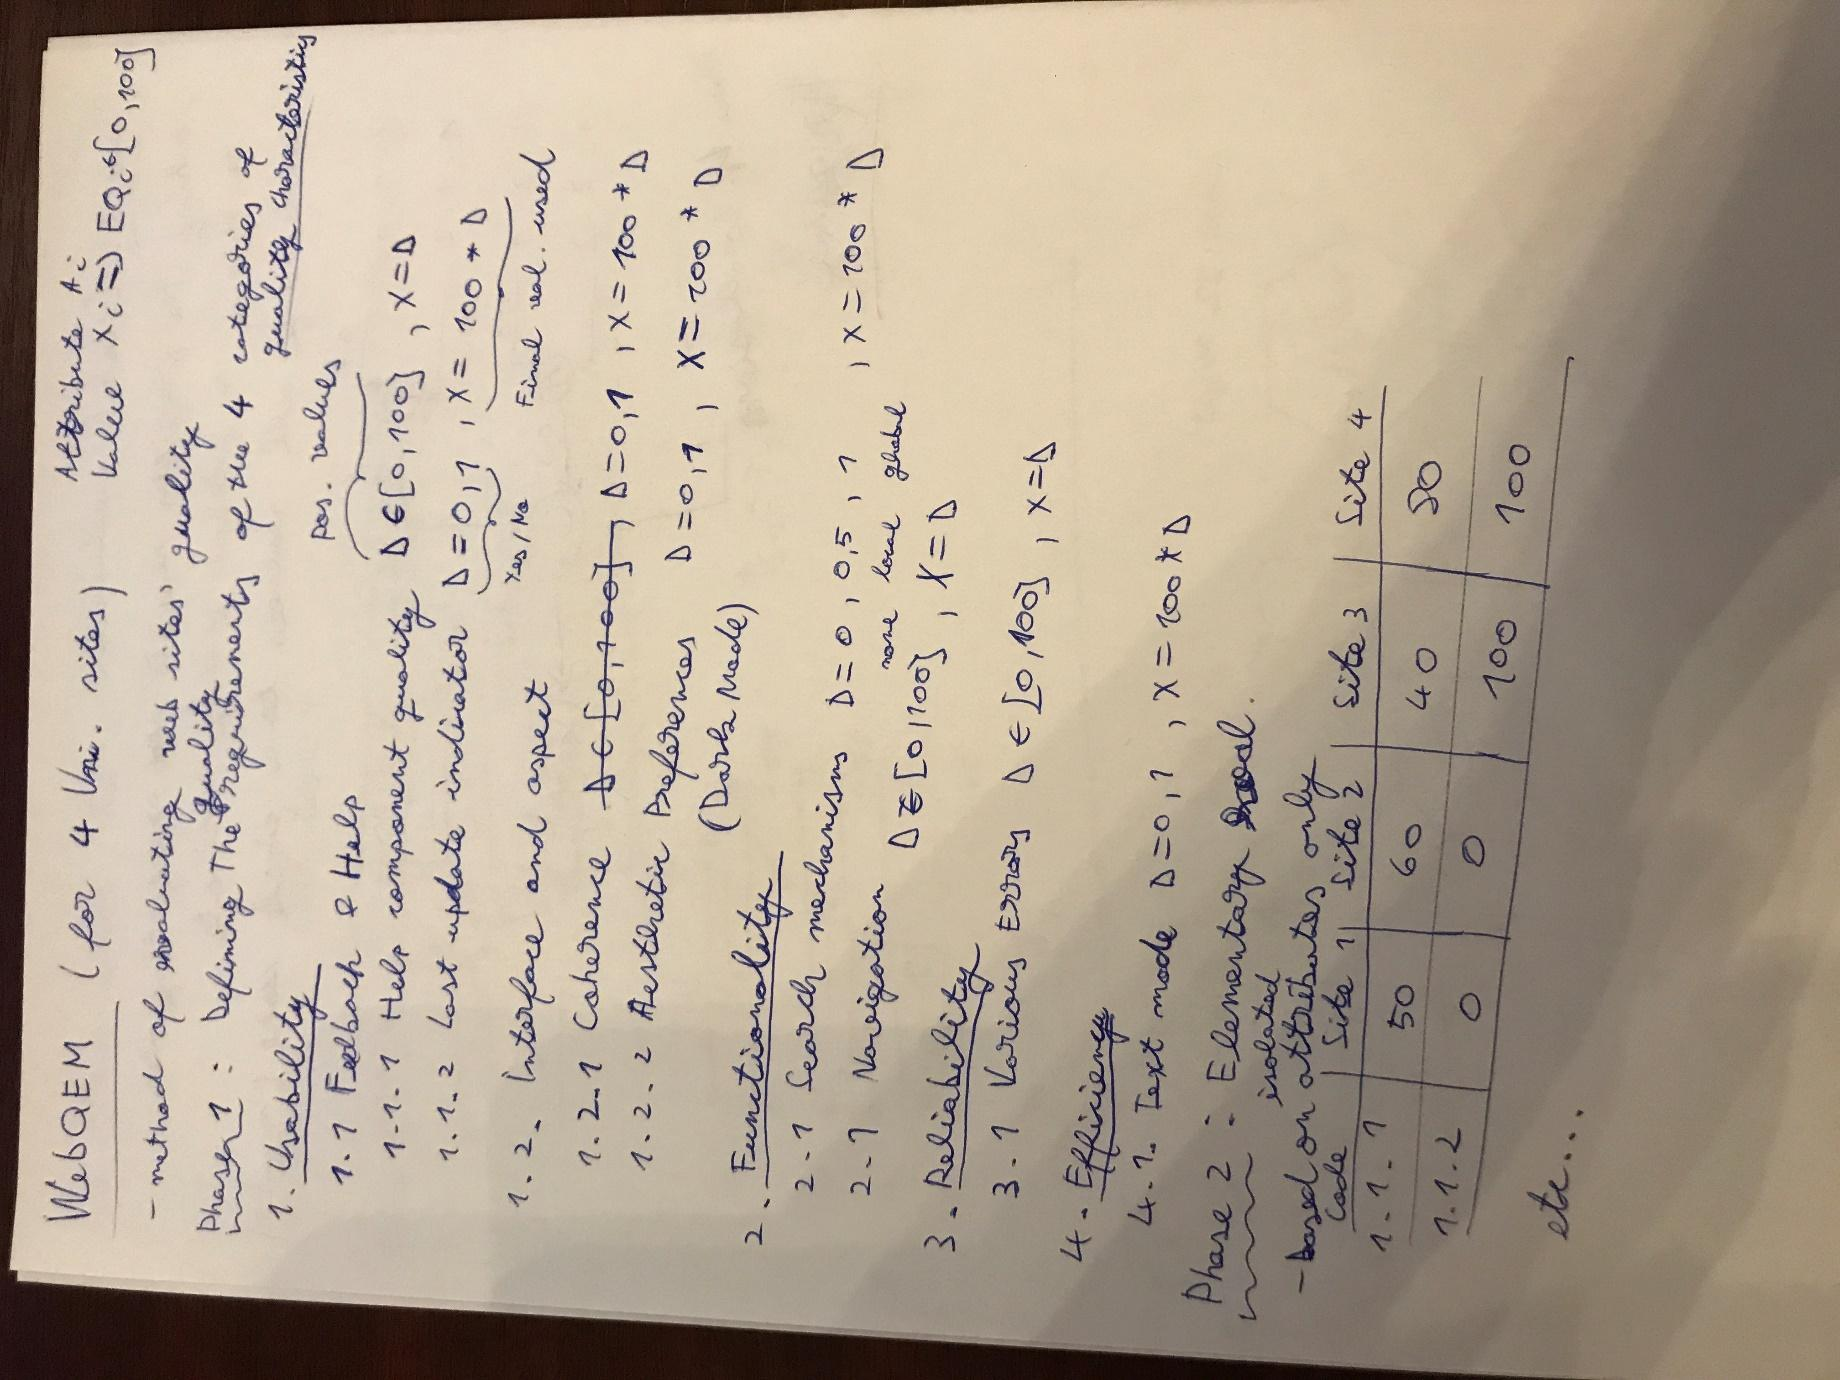 WebQEM (for 4 Uni. sites)
Attribute Ai
Value Xi => EQi ∈ [0,100]
- method of evaluating web sites' quality
Phase 1: Defining The quality requirements of the 4 categories of
quality characteristics
1. Usability
pos. values
1.1 Feedback & Help
1.1.1 Help component quality D ∈ [0,100], X=D
1.1.2 Last update indicator D=0,1, X= 100 * D
Yes/No
Final val. used
1.2. Interface and aspect
1.2.1 Coherence D ∈ [0,100], D=0,1, X= 100 * D
1.2.2 Aesthetic Preferences D=0,1, X=100 * D
(Dark Mode)
2. Functionality
2.1 Search mechanisms D=0, 0,5, 1, X=100 * D
none local global
2.1 Navigation D ∈ [0,100], X=D
3. Reliability
3.1 Various Errors D ∈ [0,100], X=D
4. Efficiency
4.1. Text mode D=0,1, X=100*D
Phase 2: Elementary eval.
isolated
- based on attributes only
Code Site 1 Site 2 Site 3 Site 4
1.1.1 50 60 40 50
1.1.2 0 0 100 100
etc...